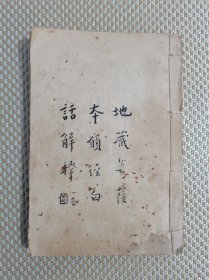 地藏菩薩
本願經白
話解釋